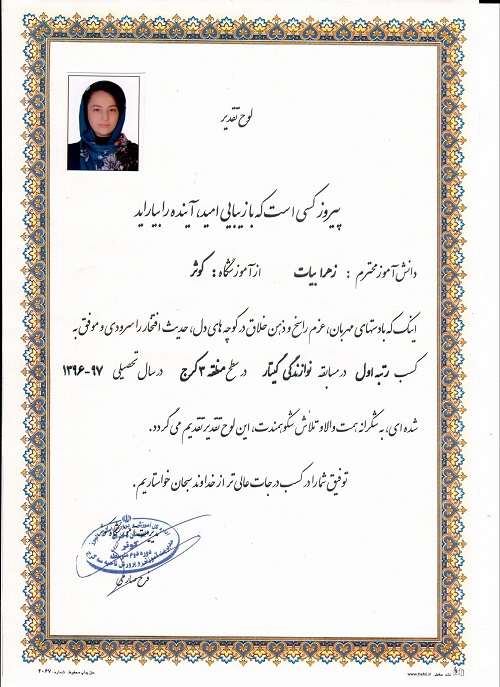 لوح تقدیر
پیروز کسی است که با زیبایی امید، آینده را بیاراید
دانش آموز محترم : زهرا بیات از آموزشگاه : کوثر
اینک که با دستهای مهربان، عزم راسخ و ذهن خلاق در کوچه های دل، حدیث افتخار را سرودی و موفق به
کسب رتبه اول در مسابقه نوازندگی گیتار در سطح منطقه ۳ کرج در سال تحصیلی ۹۷-۱۳۹۶
شده ای، به شکرانه همت والا و تلاش شکوهمندت، این لوح تقدیر تقدیم می گردد.
توفیق شما را در کسب درجات عالی تر از خداوند سبحان خواستاریم.
کوثر
دوره دوم
www.hetzi.ir